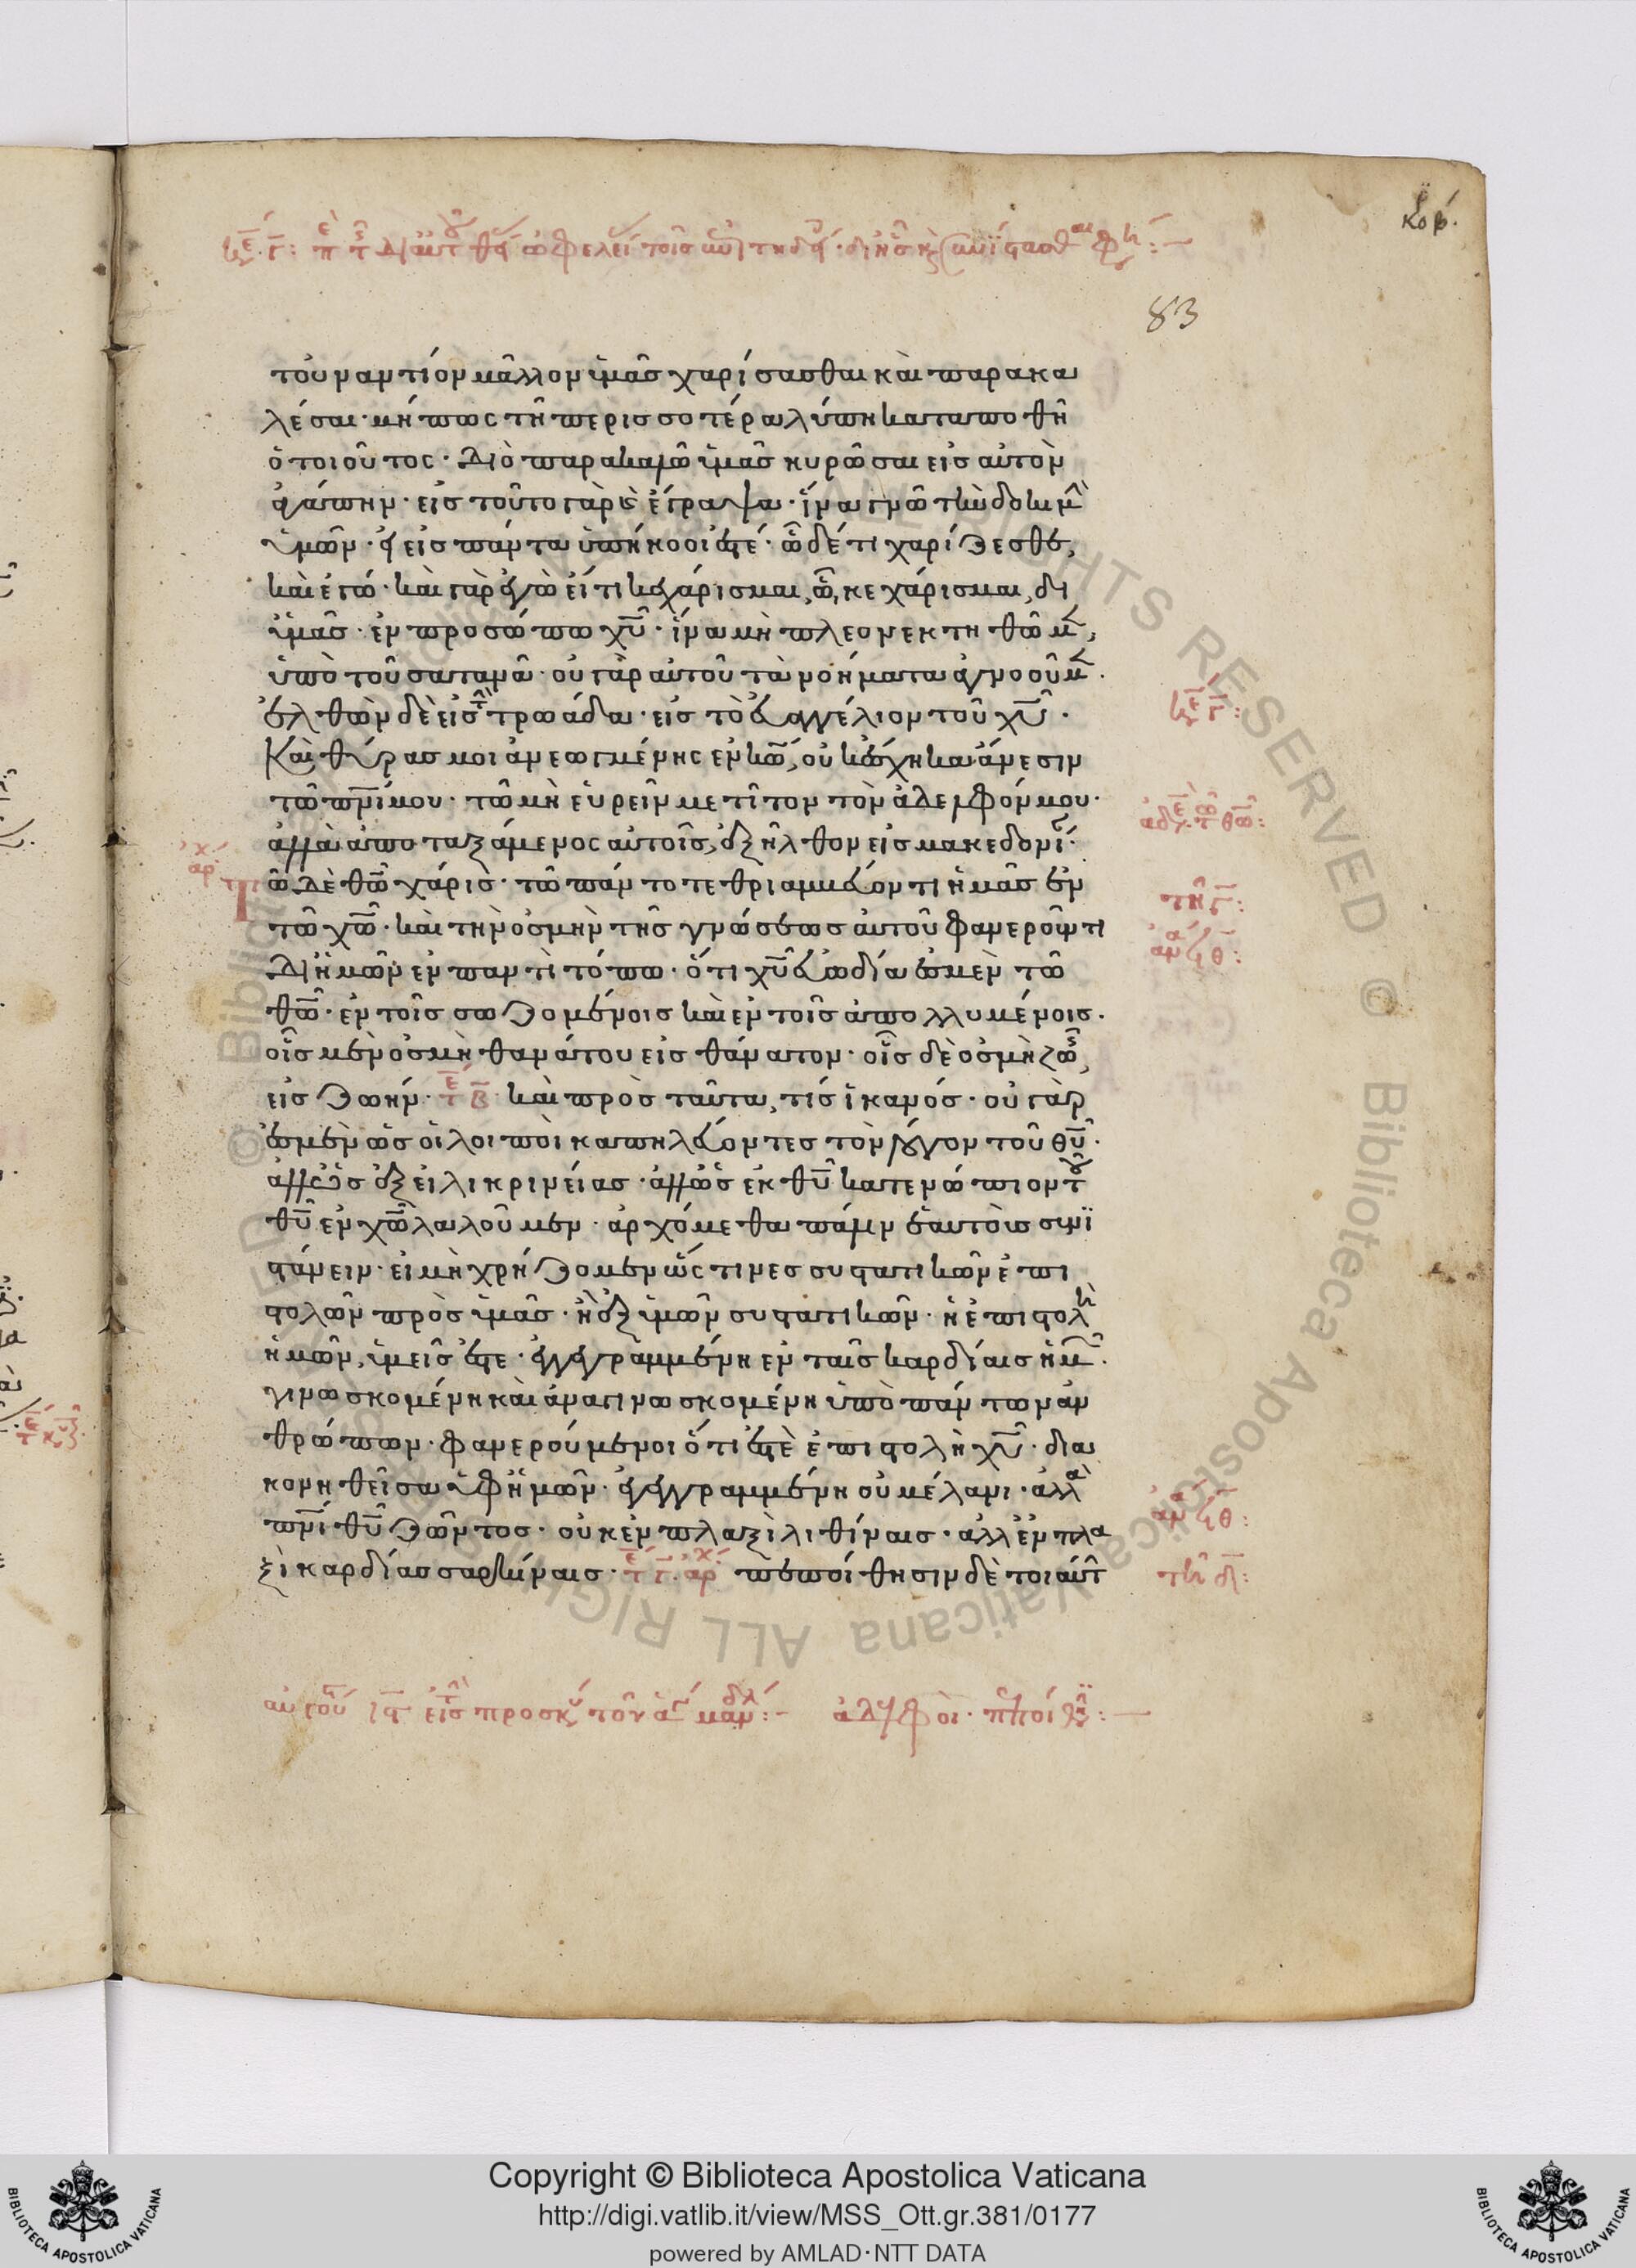 κορ.
83
τοὐναντίον μᾶλλον ὑμᾶς χαρίσασθαι καὶ παρακα
λέσαι· μήπως τῇ περισσοτέρα λύπη καταποθῆ
ὁ τοιοῦτος· Διὸ παρακαλῶ ὑμᾶς κυρῶσαι εἰς αὐτὸν
ἀγάπην· εἰς τοῦτο γὰρ καὶ ἔγραψα· ἵνα γνῶ τὴν δοκιμὴν
ὑμῶν· εἰ εἰς πάντα ὑπήκοοί ἐστέ· ὧ δέ τι χαρίζεσθε,
καὶ ἐγώ· καὶ γὰρ ἐγὼ εἴ τι κεχάρισμαι, ὧ κεχάρισμαι, δι
ὑμᾶς· ἐν προσώπω χυ· ἵνα μὴ πλεονεκτηθῶμεν,
ὑπὸ τοῦ σατανᾶ· οὐ γὰρ αὐτοῦ τὰ νοήματα ἀγνοοῦμεν.
ἐλθὼν δὲ εἰς τὴν τρωάδα· εἰς τὸ εὐαγγέλιον τοῦ χυ·
Καὶ θύρας μοι ἀνεωγμένης ἐν κω, οὐκ ἔσχηκα ἄνεσιν
τῶ πνί μου· τῶ μὴ εὑρεῖν με τίτον τὸν ἀδελφόν μου·
ἀλλὰ ἀποταξάμενος αὐτοῖς, ἐξῆλθον εἰς μακεδονί·
Τῶ δὲ θω χάρις· τῶ πάντοτε θριαμβεύοντι ἡμᾶς ἐν
τῶ χω· καὶ τὴν ὀσμὴν τῆς γνώσεως αὐτοῦ φανεροῦντι
Δι ἡμῶν ἐν παντὶ τόπω· ὅτι χυ εὐωδία ἐσμὲν τῶ
θω· ἐν τοῖς σωζομένοις καὶ ἐν τοῖς ἀπολλυμένοις.
οἷς μὲν ὀσμὴ θανάτου εἰς θάνατον· οἷς δὲ ὀσμὴ ζωῆς,
εἰς ζωήν· καὶ πρὸς ταῦτα, τίς ἱκανός· οὐ γὰρ
ἐσμὲν ὡς οἱ λοιποὶ καπηλεύοντες τὸν λόγον τοῦ θυ·
ἀλλ ὡς ἐξ εἰλικρινείας· ἀλλ ὡς ἐκ θυ κατενώπιον τοῦ
θυ ἐν χω λαλοῦμεν· ἀρχόμεθα πάλιν ἑαυτοὺς συνι
στάνειν· εἰ μὴ χρήζομεν ὥς τινες συστατικῶν ἐπι
στολῶν πρὸς ὑμᾶς· ἢ ἐξ ὑμῶν συστατικῶν· ἡ ἐπιστολὴ
ἡμῶν, ὑμεῖς ἐστε· ἐγγεγραμμένη ἐν ταῖς καρδίαις ἡμ.
γινωσκομένη καὶ ἀναγινωσκομένη ὑπὸ πάντων ἀν
θρώπων· φανερούμενοι ὅτι ἐστὲ ἐπιστολὴ χυ· δια
κονηθεῖσα ὑφ ἡμῶν· ἐγγεγραμμένη οὐ μέλανι· ἀλλὰ
πνι θυ ζῶντος· οὐκ ἐν πλαξὶ λιθίναις· ἀλλ ἐν πλα
ξὶ καρδίας σαρκίναις· πεποίθησιν δὲ τοιαύτ
Copyright © Biblioteca Apostolica Vaticana
http://digi.vatlib.it/view/MSS_Ott.gr.381/0177
powered by AMLAD·NTT DATA
BIBLIOTECA APOSTOLICA VATICANA
BIBLIOTECA APOSTOLICA VATICANA